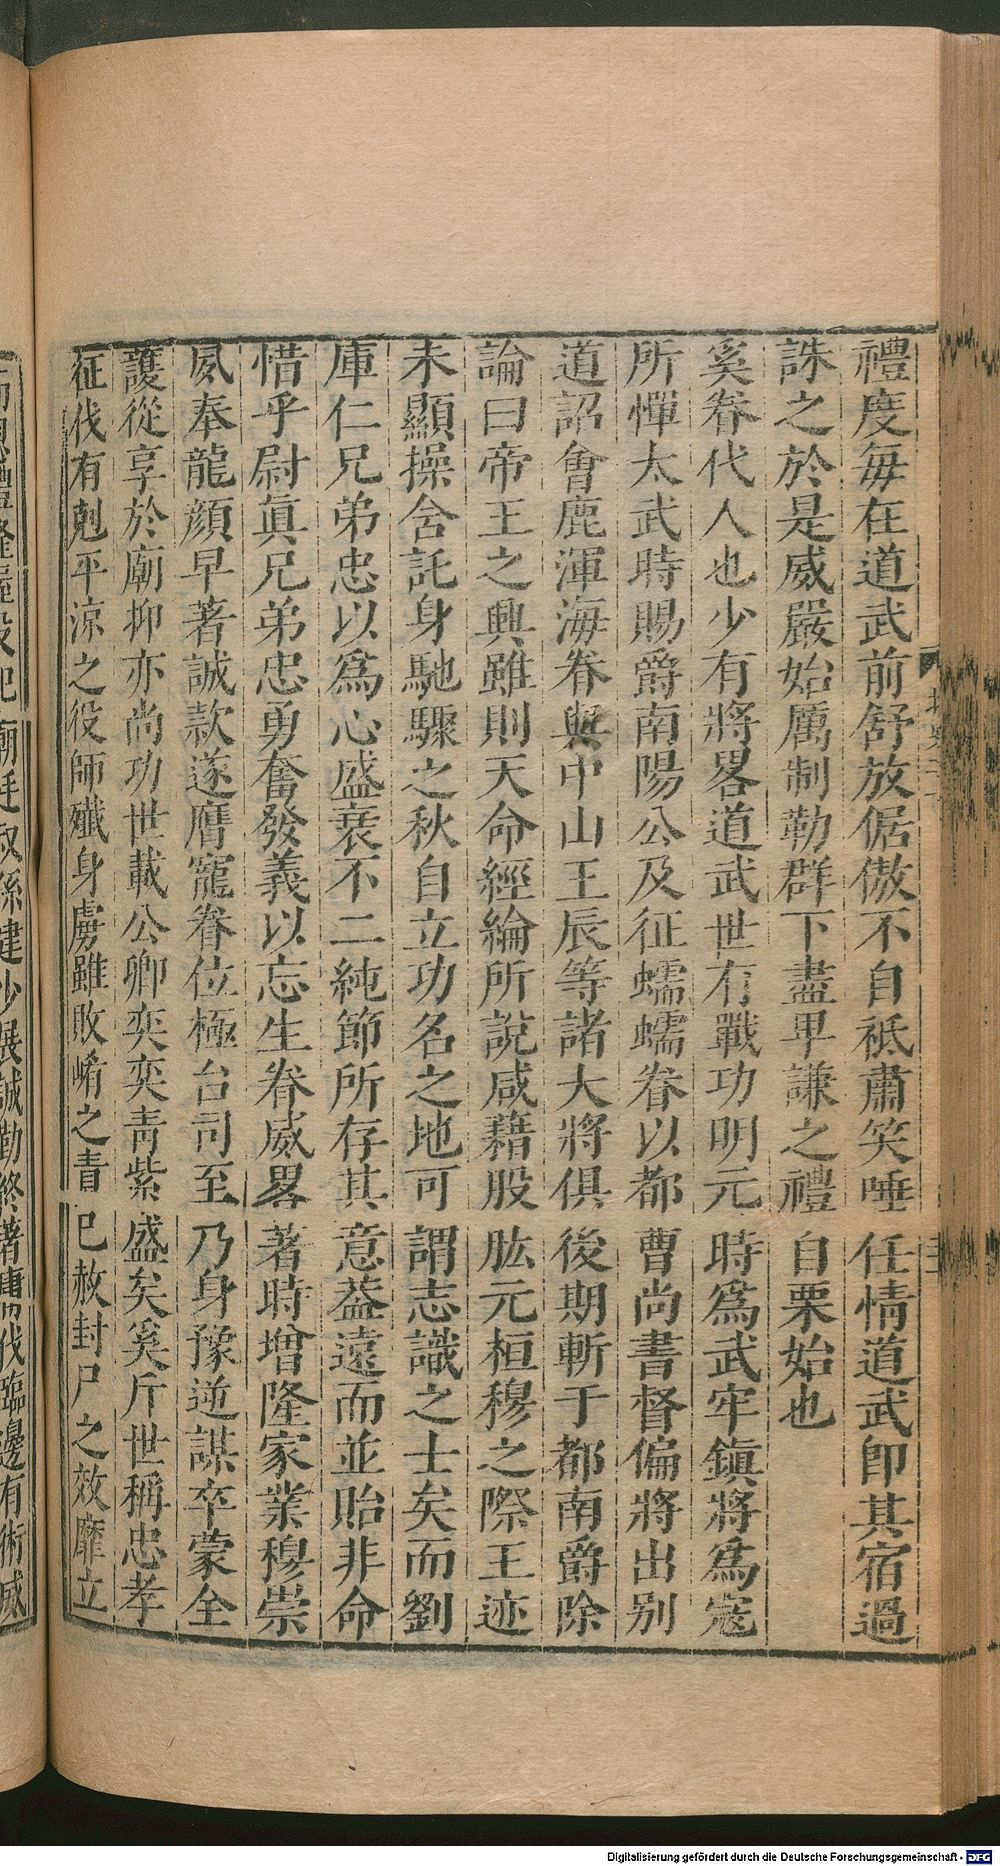 禮度每在道武前舒放倨傲不自祗肅笑唾任情道武即其宿過
誅之於是威嚴始厲制勒群下盡卑謙之禮自栗始也
奚眷代人也少有將畧道武世有戰功明元時爲武牢鎮將爲寇
所憚太武時賜爵南陽公及征蠕蠕眷以都曹尚書督偏將出别
道詔會鹿渾海眷與中山王辰等諸大將俱後期斬于都南爵除
論曰帝王之興雖則天命經綸所說咸藉股肱元桓穆之際王迹
未顯操舍託身馳驟之秋自立功名之地可謂志識之士矣而劉
庫仁兄弟忠以爲心盛衰不二純節所存其意葢遠而並貽非命
惜乎尉眞兄弟忠勇奮發義以忘生眷威畧著時增隆家業穆崇
夙奉龍顔早著誠款遂膺寵眷位極台司至乃身豫逆謀卒蒙全
護從享於廟抑亦尚功世載公卿奕奕靑紫盛矣奚斤世稱忠孝
征伐有剋平涼之役師殲身虜雖敗崤之責已赦封尸之效靡立
廟廷叔孫建少展誠勤終著庸伐臨邊有術威
Digitalisierung gefördert durch die Deutsche Forschungsgemeinschaft - DFG